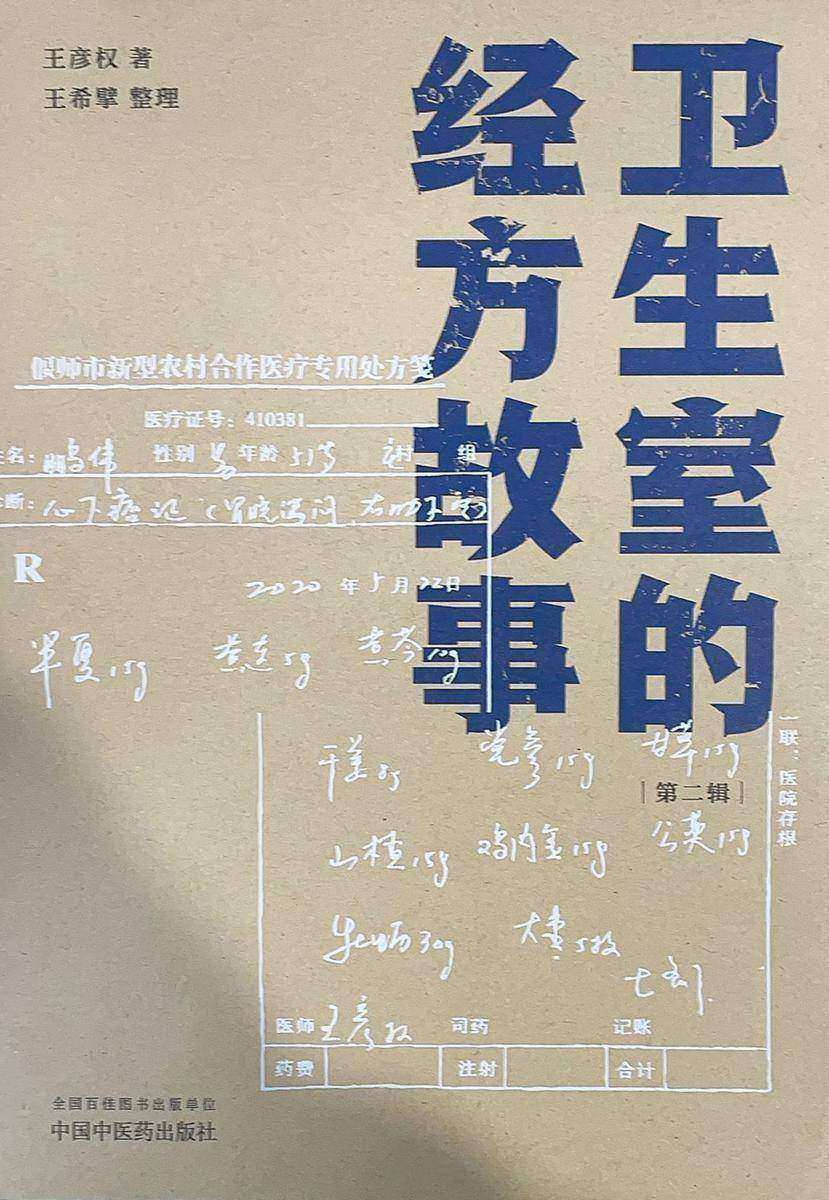 王彦权 著
王希擘 整理
卫生室的
经方故事
第二辑
偃师市新型农村合作医疗专用处方笺
医疗证号：410381
名： 性别 男 年龄 51岁 村 组
断：心下痞证（胃脘满闷
R
2020年5月22日
半夏15g 黄连5g 黄芩10g
干姜8g 党参15g 甘草15g
山楂15g 鸡内金15g 公英15g
牡蛎30g 大枣5枚
七剂
一联：医院存根
医师 王彦权 司药 记账
药费 注射 合计
全国百佳图书出版单位
中国中医药出版社